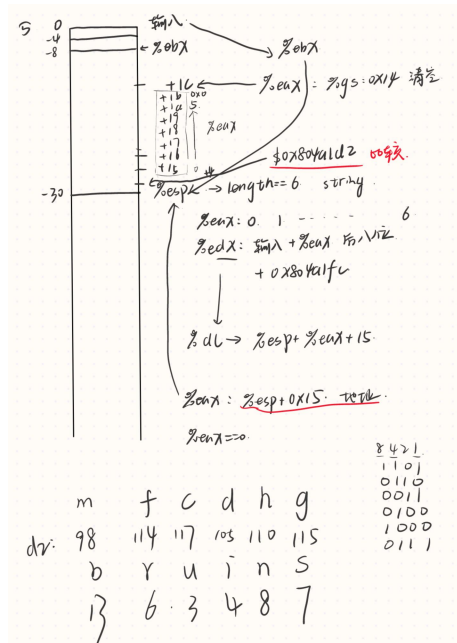 5 0 输入
-4
-8 ← %ebx %ebx
+1C ← %eax = %gs:0x14 清空
+1b 0x0
+1a 5
+19
+18 %eax
+17
+16
+15 0
$0x804a1d2 比较
-30 %esp → length==6 string
%eax: 0 1 ------ 6
%edx: 输入 + %eax 后八位
+ 0x804a1fc
%dl → %esp + %eax + 15
%eax: %esp + 0x15 地址
%eax == 0
8 4 2 1
1 1 0 1
0 1 1 0
0 0 1 1
0 1 0 0
1 0 0 0
0 1 1 1
m f c d h g
98 114 117 105 110 115
b r u i n s
13 6 3 4 8 7